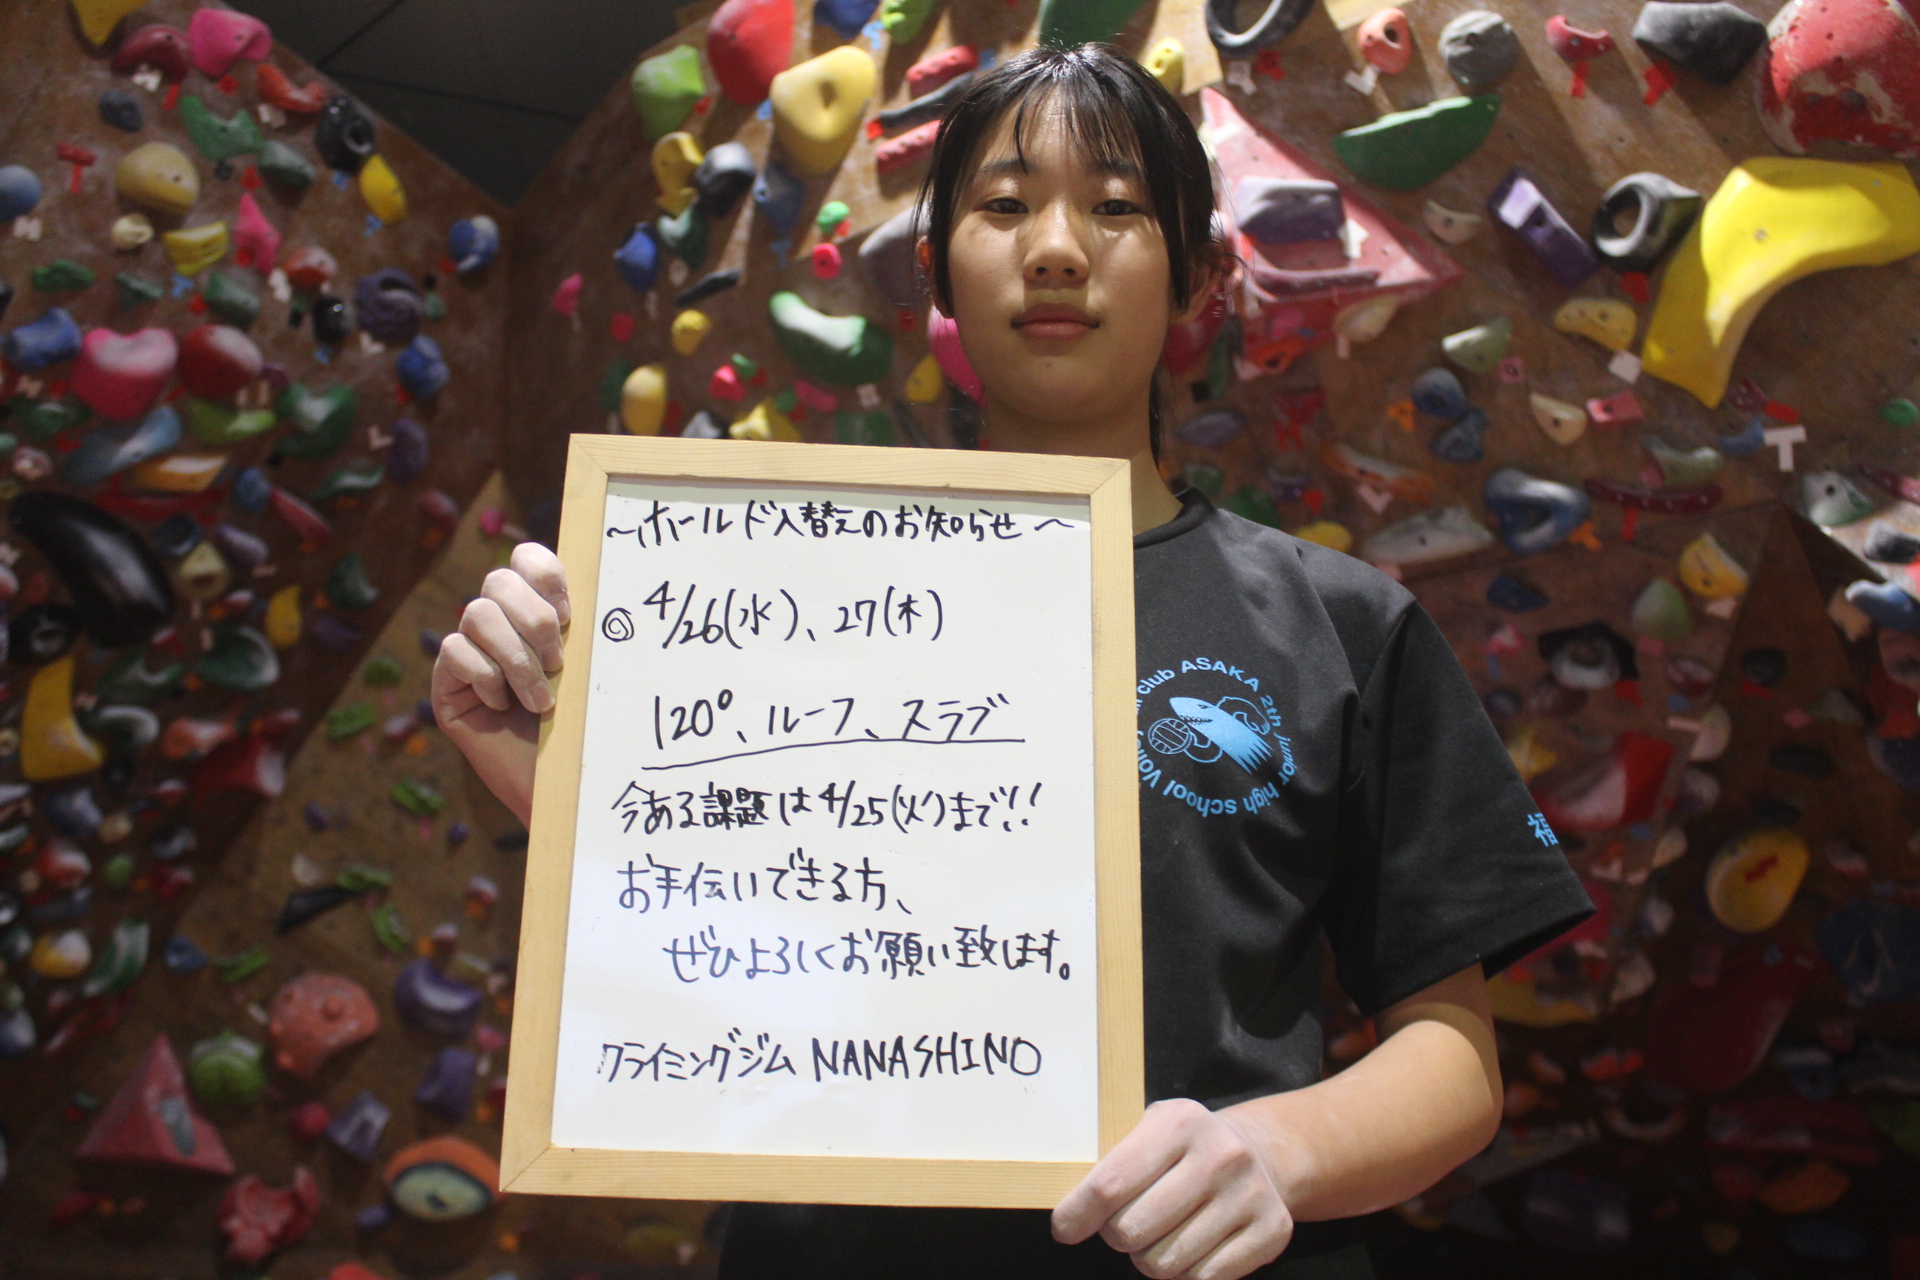 ～ホールド入替えのお知らせ～
◎4/26(水)、27(木)
120°、ルーフ、スラブ
今ある課題は4/25(火)まで!!
お手伝いできる方、
ぜひよろしくお願い致します。
クライミングジム NANASHINO
club ASAKA 2th junior high school Volley
福